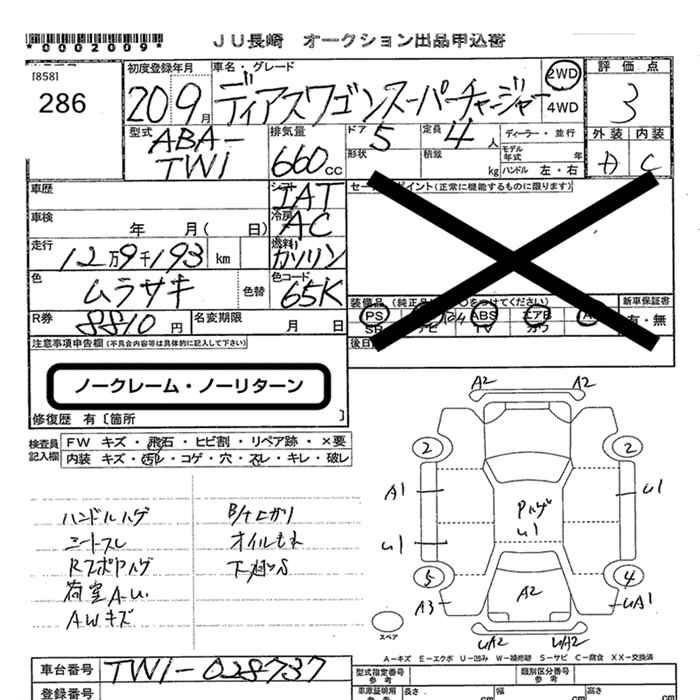 *0002009*
JU長崎 オークション出品申込書
[858]
286
初度登録年月
20 9月
車名・グレード
ディアスワゴンスーパーチャージャー
2WD
4WD
評価点
3
型式
ABA-
TW1
排気量
660cc
ドア 5
定員 4人
ディーラー・並行
形状
積載 kg
モデル年式 年
ハンドル 左・右
外装 内装
D C
車歴
シフト
IAT
セールスポイント(正常に機能するものに限ります)
車検 年 月( 日)
冷房
AC
走行
12万9千193 km
燃料
ガソリン
色
ムラサキ
色替
色コード
65K
装備品(純正品に○をつけてください)
新車保証書
有・無
PS ABS エアB
SR ナビ TV カワ
R券
8810円
名変期限 月 日
後日
注意事項申告欄(不具合内容等は具体的に記入して下さい)
ノークレーム・ノーリターン
修復歴 有〔箇所 〕
検査員
記入欄
FW キズ・飛石・ヒビ割・リペア跡・×要
内装 キズ・汚レ・コゲ・穴・スレ・キレ・破レ
ハンドルハゲ
シートスレ
荷室A-U.
AWキズ
オイルもれ
A2 A2
2 2
A1 U1
Pハゲ
U1
U1
5 4
A2
A3 UA1
UA2 UA2
スペア
A-キズ E-エクボ U-凹み W-補修跡 S-サビ C-腐食 XX-交換済
車台番号
TW1-028737
登録番号
型式指定番号
参考
類別区分番号
参考
車庫証明用
参考
長さ cm
幅 cm
高さ cm